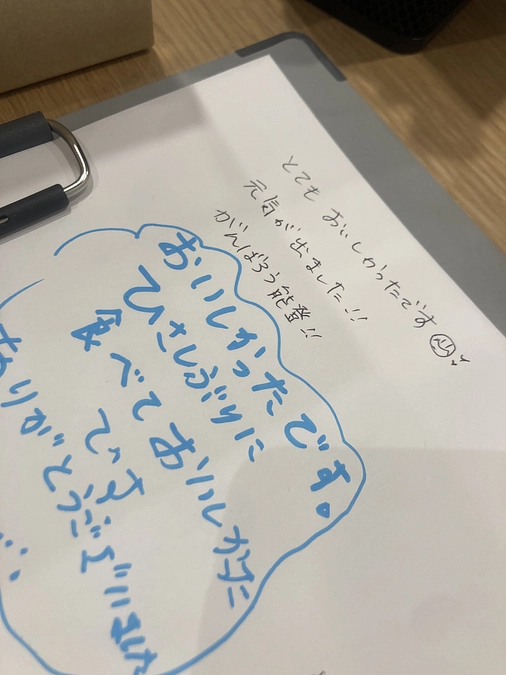 とても おいしかったです
元気が出ました!!
がんばろう能登!!
おいしかったです。
ひさしぶりに
食べておいしかった
です
ありがとうございました